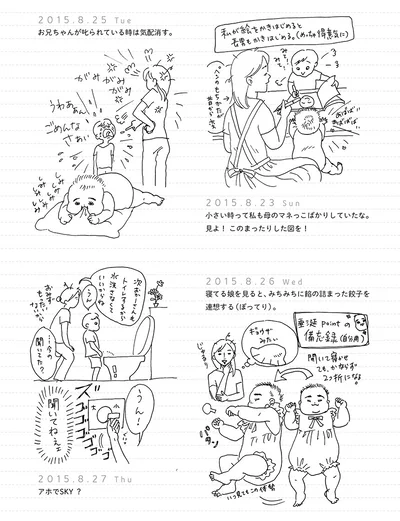 2015.8.25 Tue
お兄ちゃんが叱られている時は気配消す。
がみ
がみ
がみ
うわあぁん
ごめんな
さぁい
しみ
じみ
しみ
じみ
私が絵をかきはじめると
長男もかきはじめる。(めっちゃ得意気に)
みて
みてー
あばばば
2015.8.23 Sun
小さい時って私も母のマネっこばかりしていたな。
見よ！ このまったりした図を！
次おかーさんも
トイレするから
水流さなくて
いいからね
うん
…今の
聞いてた？
うん！
聞いてねぇ
ズ
ゴ
ゴ
ゴ
ゴ
大
小
2015.8.27 Thu
アホでSKY？
2015.8.26 Wed
寝てる娘を見ると、みちみちに餡の詰まった餃子を
連想する（ぽってり）。
ギョウザ
みたい
じゅるり
亜涎 paint の
備忘録(自分用)
開いて寝かせ
ても、かならず
2つ折になる。
いつ見てもこの体勢